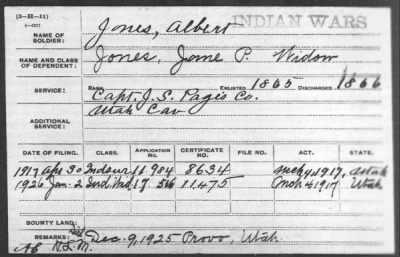 (3-H-11)
INDIAN WARS
NAME OF SOLDIER: Jones, Albert
NAME AND CLASS OF DEPENDENT: Jones, Jome P. Widow
SERVICE: RANK ENLISTED 1865 DISCHARGED 1866
Capt. J. S. Pagis Co.
Utah Cav
ADDITIONAL SERVICE:
DATE OF FILING. CLASS. APPLICATION NO. CERTIFICATE NO. FILE NO. ACT. STATE.
1917 Apr 30 Ind Sur 11 984 8634 1917, Utah
1926 Jan. 2 Ind Wid 17 516 11475 Mch 4 1917 Utah
BOUNTY LAND:
REMARKS: Dec. 9, 1925 Provo, Utah.